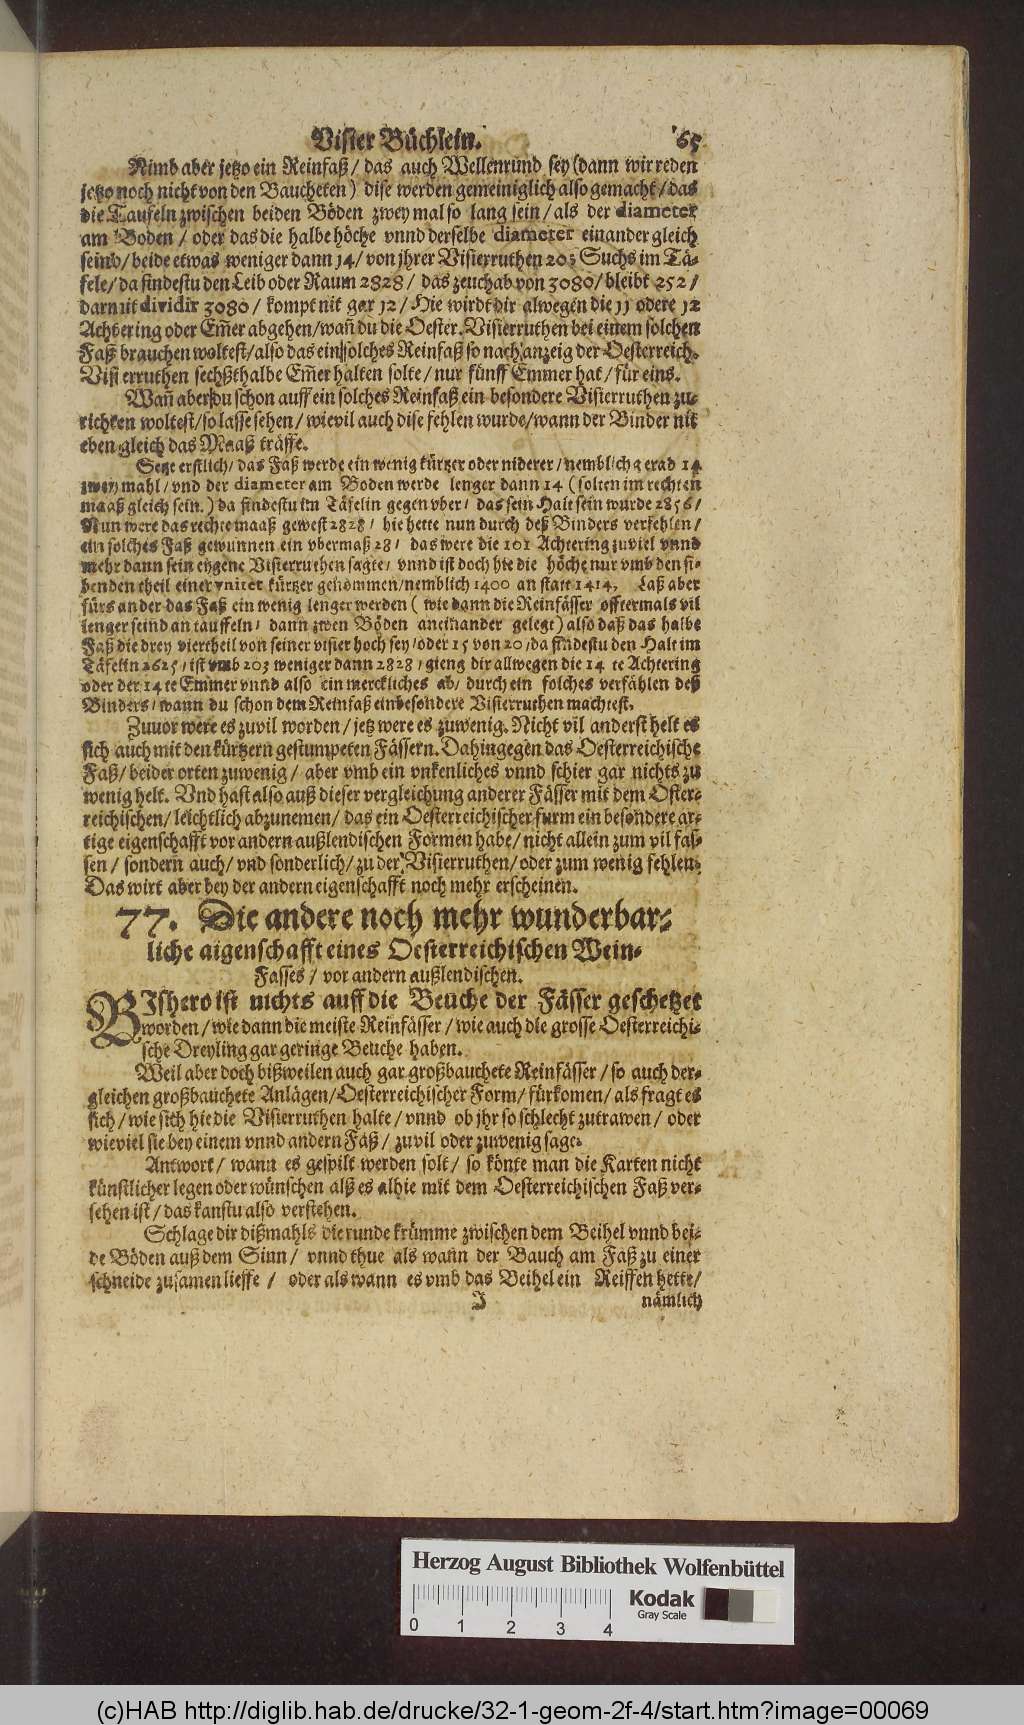 Visier Büchlein. 65
Nimb aber jetzo ein Reinfaß / das auch Wellenrund sey (dann wir reden
jetzo noch nicht von den Baucheten) dise werden gemeiniglich also gemacht / das
die Taufeln zwischen beiden Böden zwey mal so lang sein / als der diameter
am Boden / oder das die halbe höche vnnd derselbe diameter einander gleich
seind / beide etwas weniger dann 14 / von jhrer Visierruthen 20; Suchs im Tä-
fele / da findestu den Leib oder Raum 2828 / das zeuch ab von 3080 / bleibt 252 /
darmit dividir 3080 / kompt nit gar 12 / Hie wirdt dir alwegen die 11 oder 12
Achtering oder Em̃er abgehen / wañ du die Oester. Visierruthen bei einem solchen
Faß brauchen woltest / also das ein solches Reinfaß so nach anzeig der Oesterreich.
Visierruthen sechßthalbe Em̃er halten solte / nur fünff Emmer hat / für eins.
Wañ aber du schon auff ein solches Reinfaß ein besondere Visierruthen zu-
richten woltest / so lasse sehen / wievil auch dise fehlen wurde / wann der Binder nit
eben gleich das Maaß träffe.
Setze erstlich / das Faß werde ein wenig kürtzer oder niderer / nemblich gerad 14
zwey mahl / vnd der diameter am Boden werde lenger dann 14 (solten im rechten
maaß gleich sein.) da findestu im Täfelin gegen vber / das sein Halt sein wurde 2856 /
Nun were das rechte maaß gewest 2828 / hie hette nun durch deß Binders verfehlen /
ein solches Faß gewunnen ein vbermaß 28 / das were die 101 Achtering zuviel vnnd
mehr dann sein eygene Visierruthen sagte / vnnd ist doch hie die höche nur vmb den si-
benden theil einer vnitet kürtzer genommen / nemblich 1400 an statt 1414. Laß aber
fürs ander das Faß ein wenig lenger werden (wie dann die Reinfässer offtermals vil
lenger seind an tauffeln / dann zwen Böden aneinander gelegt) also daß das halbe
Faß die drey viertheil von seiner visier hoch sey / oder 15 von 20 / da findestu den Halt im
Täfelin 2625 / ist vmb 203 weniger dann 2828 / gieng dir allwegen die 14 te Achtering
oder der 14 te Emmer vnnd also ein merckliches ab / durch ein solches verfählen deß
Binders / wann du schon dem Reinfaß ein besondere Visierruthen machtest.
Zuuor were es zuvil worden / jetz were es zuwenig. Nicht vil anderst helt es
sich auch mit den kürtzern gestumpeten Fässern. Dahingegen das Oesterreichische
Faß / beider orten zuwenig / aber vmb ein vnkenliches vnnd schier gar nichts zu
wenig helt. Vnd hast also auß dieser vergleichung anderer Fässer mit dem Oster-
reichischen / leichtlich abzunemen / das ein Oesterreichischer furm ein besondere ar-
tige eigenschafft vor andern außlendischen Formen habe / nicht allein zum vil fas-
sen / sondern auch / vnd sonderlich / zu der Visierruthen / oder zum wenig fehlen.
Das wirt aber bey der andern eigenschafft noch mehr erscheinen.
77. Die andere noch mehr wunderbar-
liche aigenschafft eines Oesterreichischen Wein-
Fasses / vor andern außlendischen.
BIshero ist nichts auff die Beuche der Fässer geschetzet
worden / wie dann die meiste Reinfässer / wie auch die grosse Oesterreichi-
sche Dreyling gar geringe Beuche haben.
Weil aber doch bißweilen auch gar großbauchete Reinfässer / so auch der-
gleichen großbauchete Anlägen / Oesterreichischer Form / fürkomen / als fragt es
sich / wie sich hie die Visierruthen halte / vnnd ob jhr so schlecht zutrawen / oder
wieviel sie bey einem vnnd andern Faß / zuvil oder zuwenig sage.
Antwort / wann es gespilt werden solt / so könte man die Karten nicht
künstlicher legen oder wünschen alß es alhie mit dem Oesterreichischen Faß ver-
sehen ist / das kanstu also verstehen.
Schlage dir dißmahls die runde krümme zwischen dem Beihel vnnd bei-
de Böden auß dem Sinn / vnnd thue als wann der Bauch am Faß zu einer
schneide zusamen lieffe / oder als wann es vmb das Beihel ein Reiffen hette /
J nämlich
Herzog August Bibliothek Wolfenbüttel
0 1 2 3 4
Kodak
Gray Scale
(c)HAB http://diglib.hab.de/drucke/32-1-geom-2f-4/start.htm?image=00069